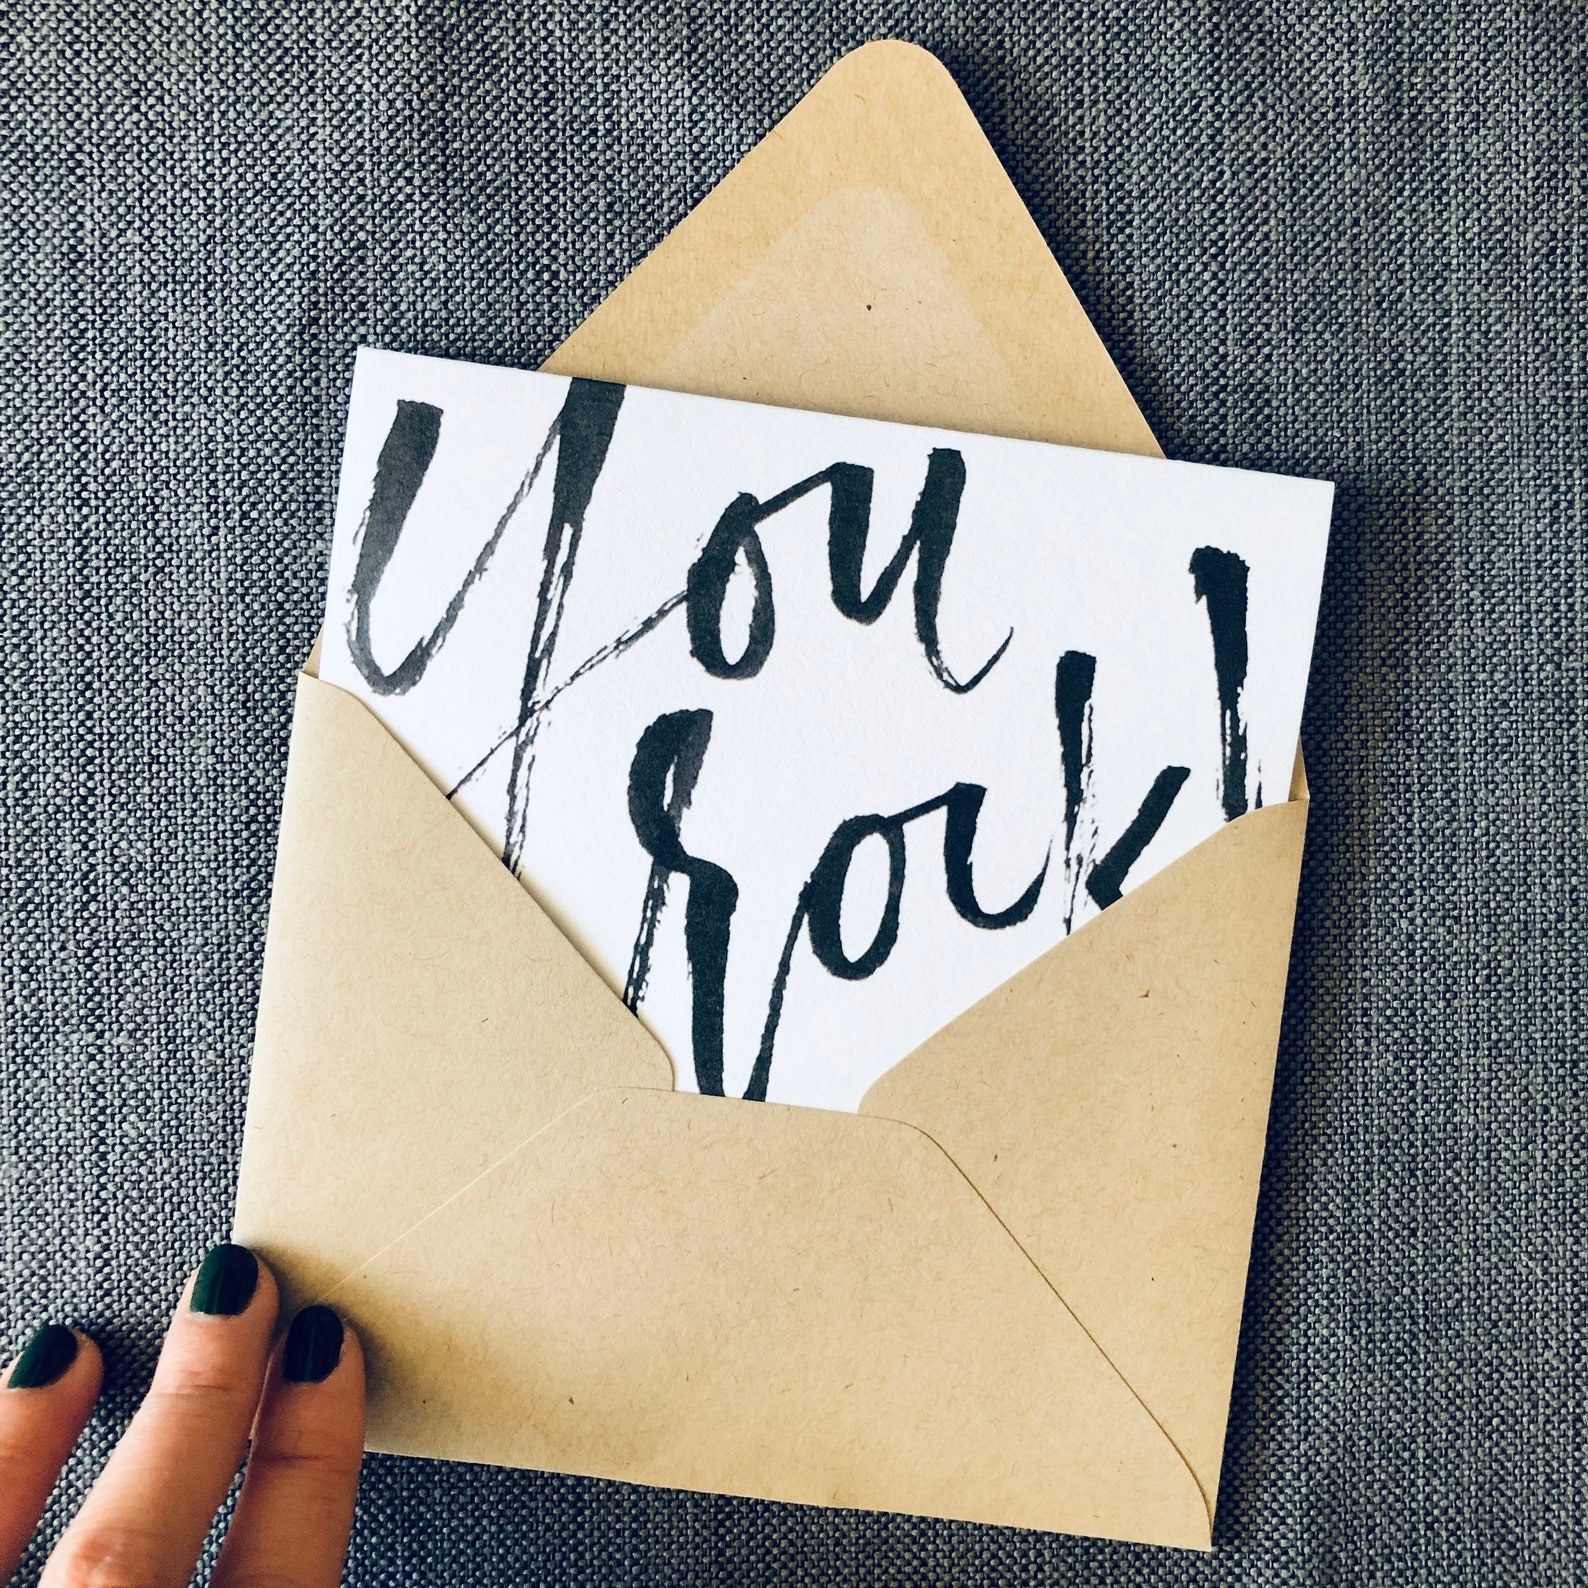 You
Rock!